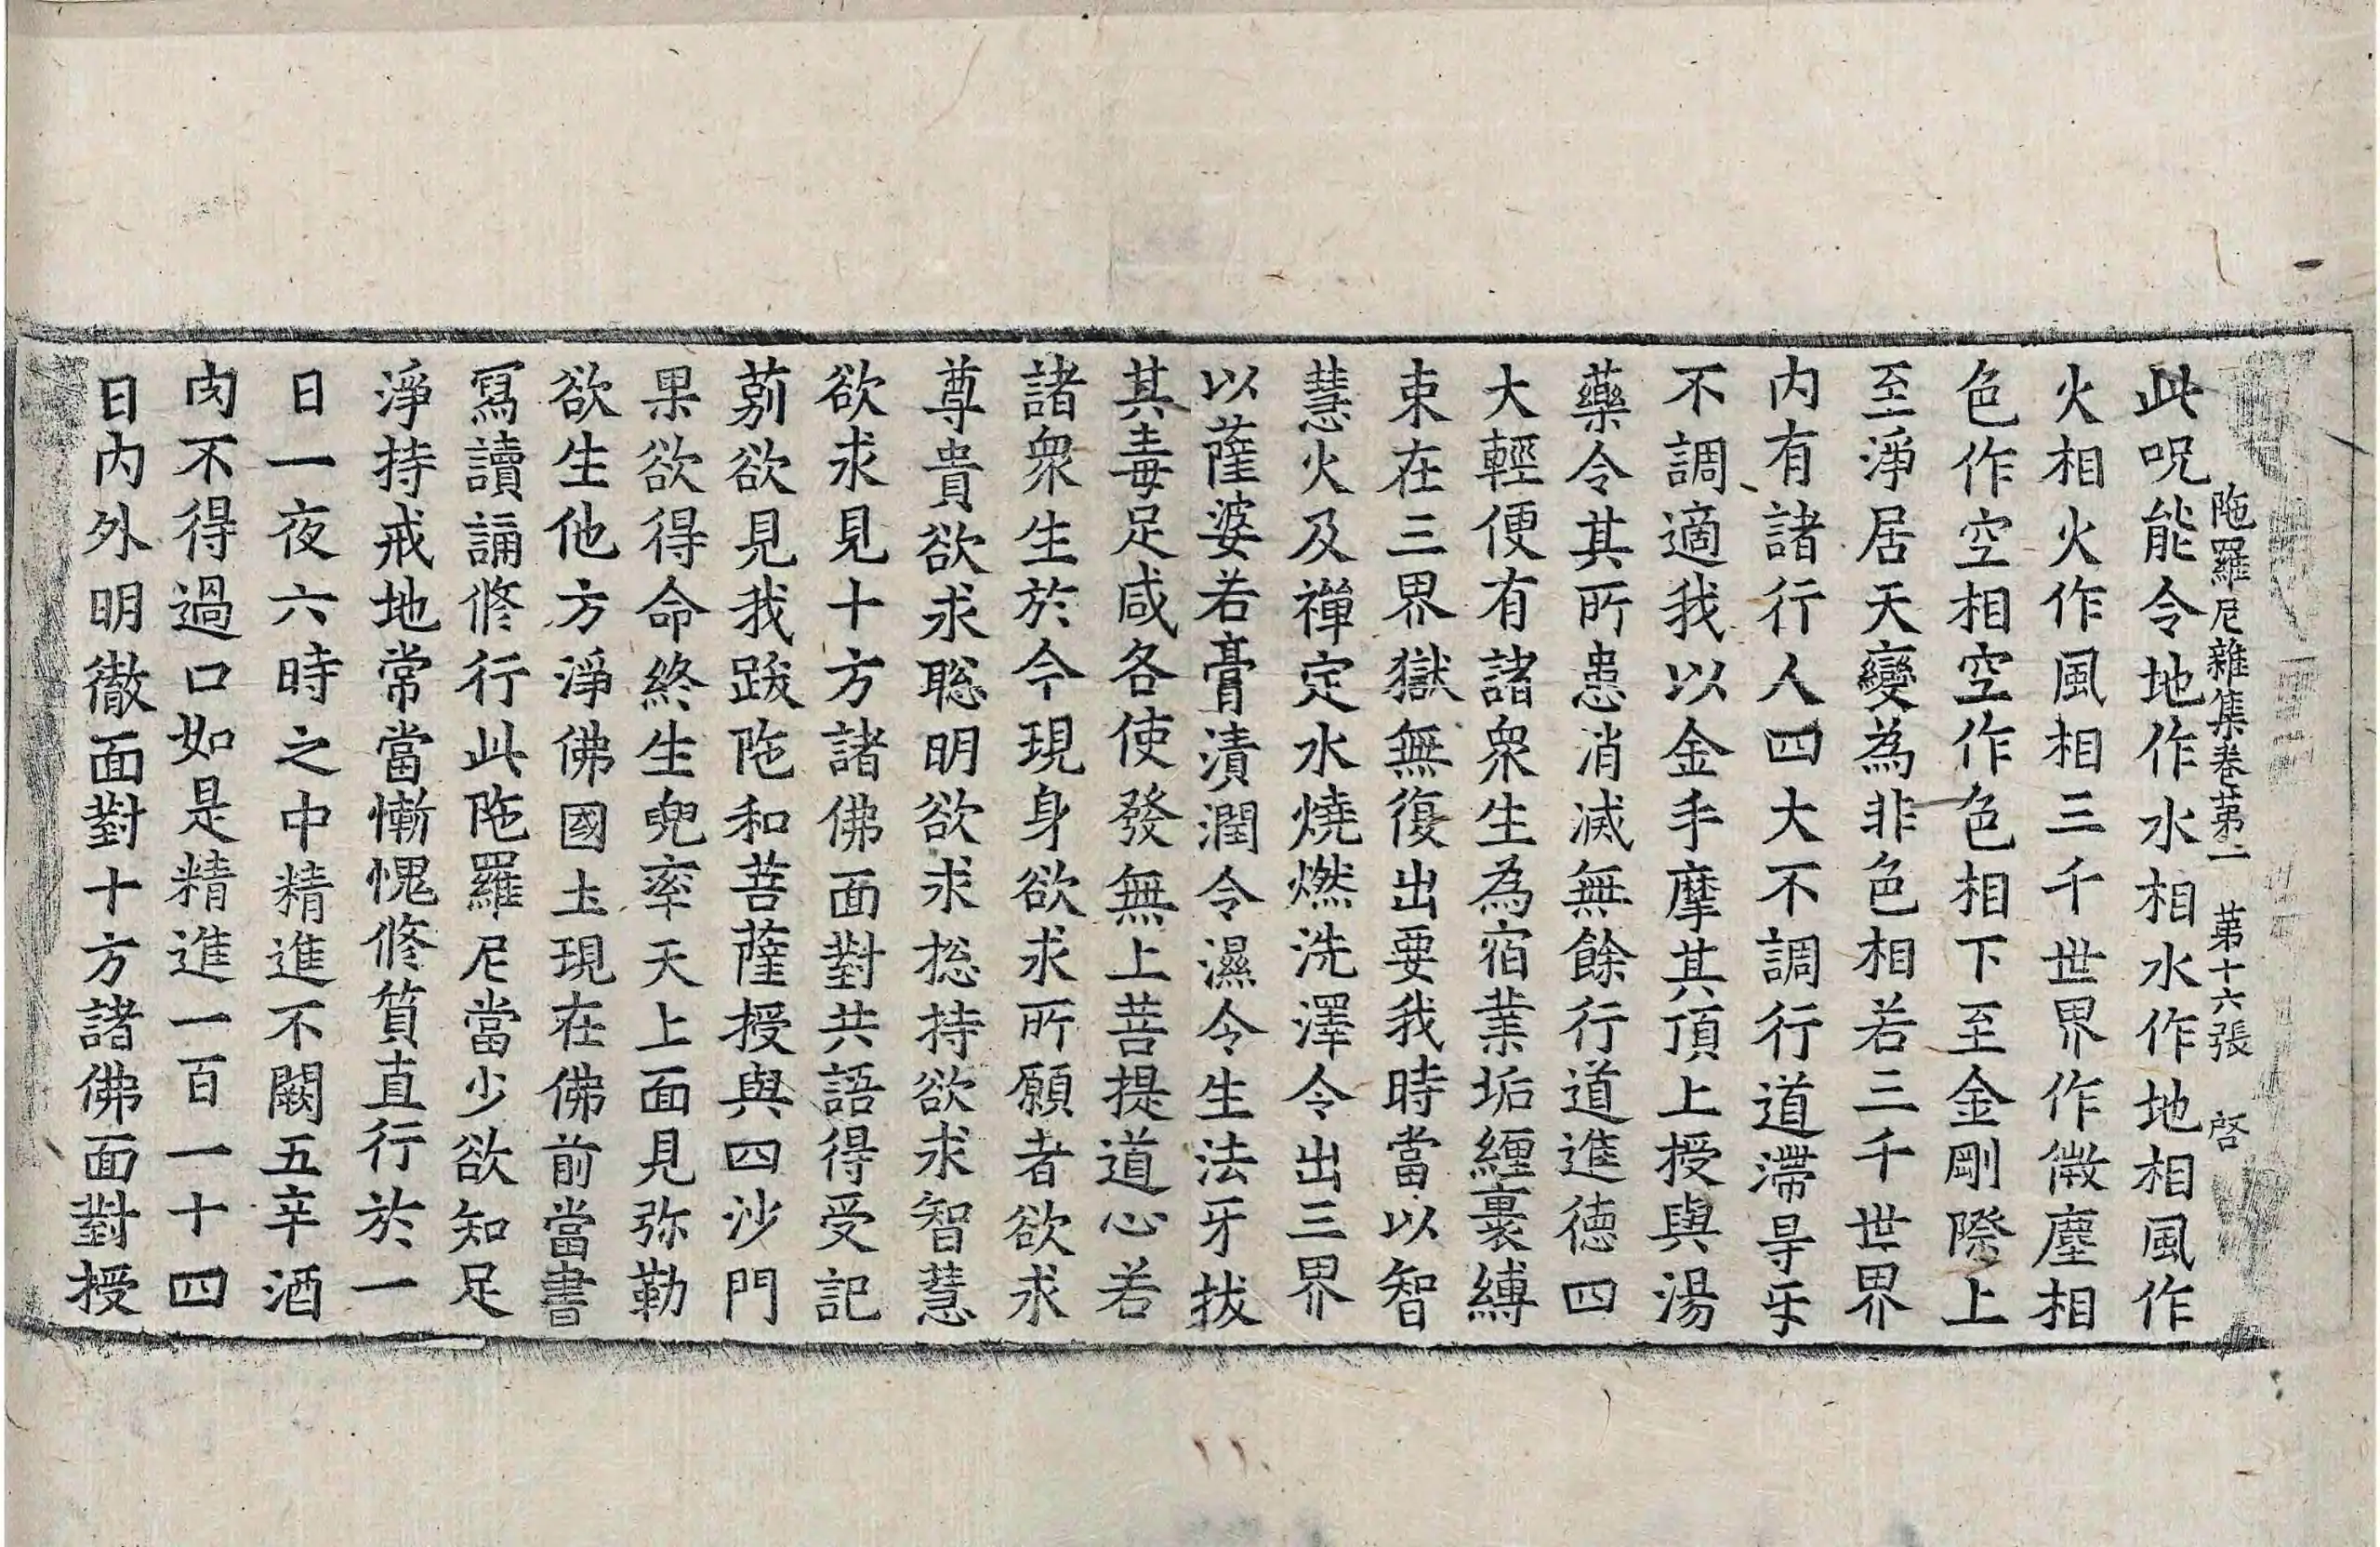 陁羅尼雜集卷第一　第十六張　啓
此呪能令地作水相水作地相風作
火相火作風相三千世界作微塵相
色作空相空作色相下至金剛際上
至淨居天變為非色相若三千世界
内有諸行人四大不調行道滯㝵乐
不調適我以金手摩其頂上授與湯
藥令其所患消滅無餘行道進德四
大輕便有諸衆生為宿業垢纏裹縛
束在三界獄無復出要我時當以智
慧火及禪定水燒燃洗澤令出三界
以薩婆若膏漬潤令濕令生法牙拔
其毒足咸各使發無上菩提道心若
諸衆生於今現身欲求所願者欲求
尊貴欲求聡明欲求捴持欲求智慧
欲求見十方諸佛面對共語得受記
莂欲見我跋陁和菩薩授與四沙門
果欲得命終生兜率天上面見弥勒
欲生他方淨佛國圡現在佛前當書
寫讀誦修行此陁羅尼當少欲知足
淨持戒地常當慚愧修質直行於一
日一夜六時之中精進不闕五辛酒
肉不得過口如是精進一百一十四
日内外明徹面對十方諸佛面對授